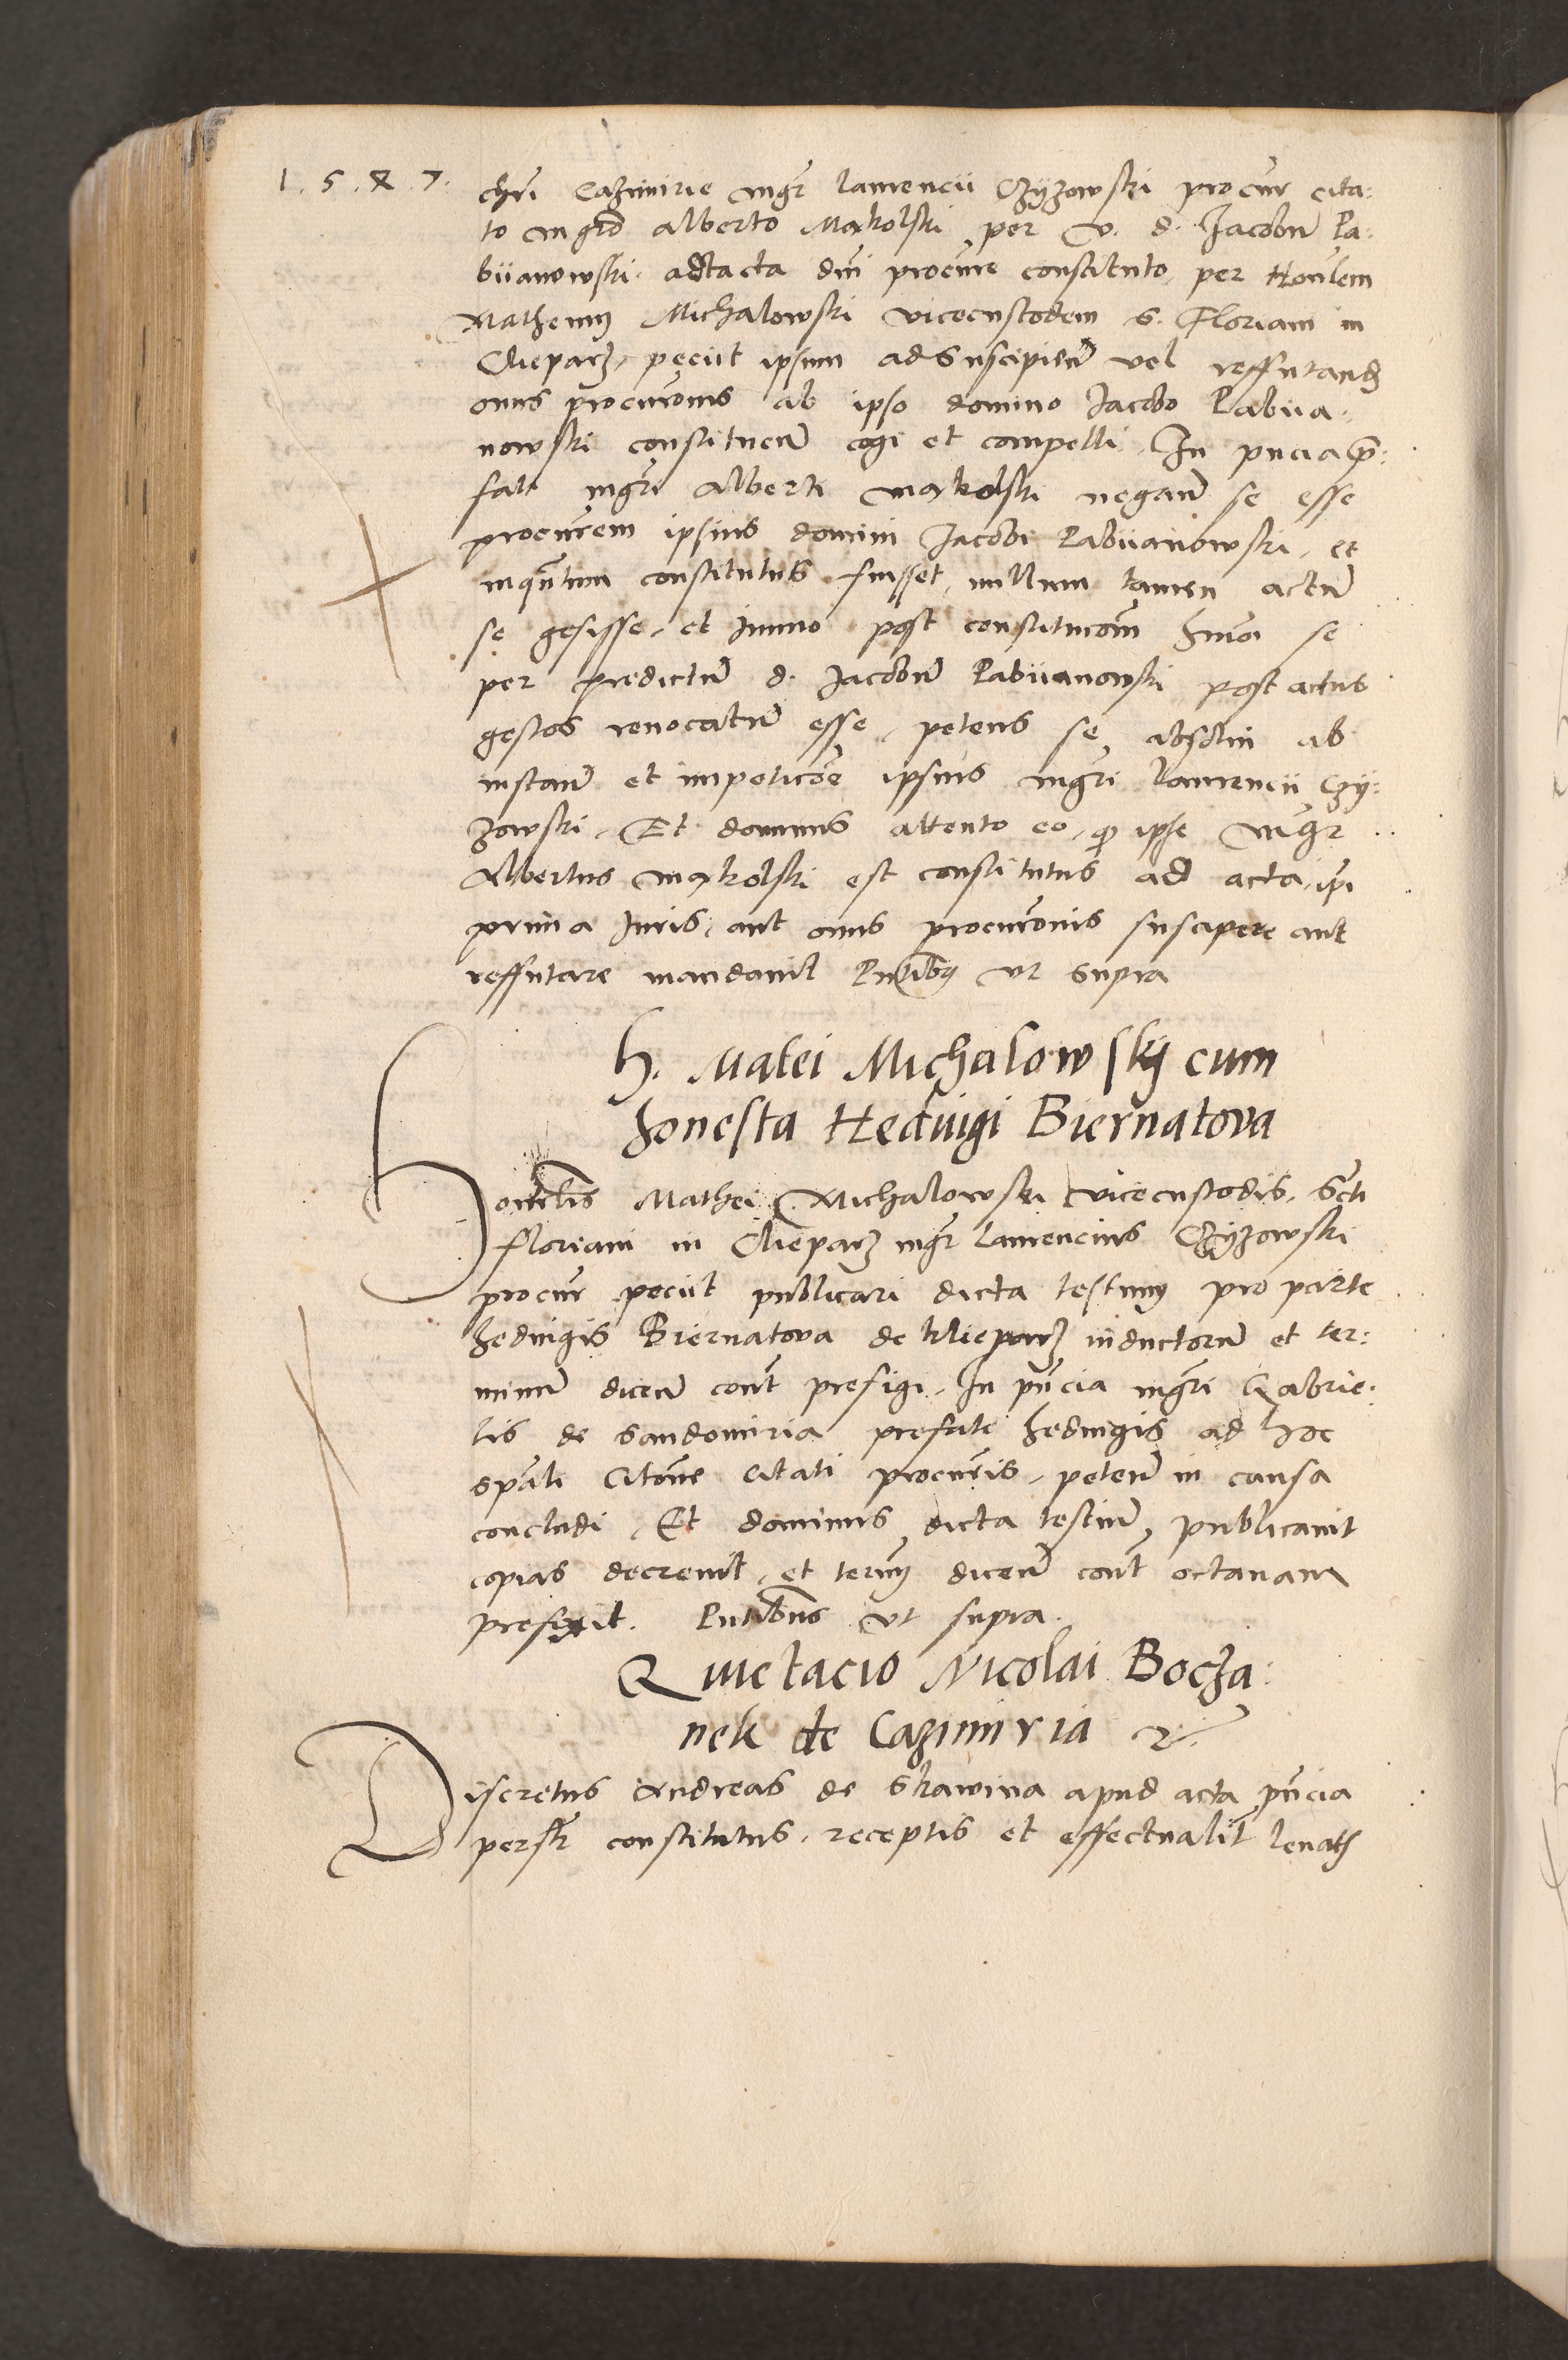 1.5.4.7.
chri Cazimirie mgr laurencii Czyzowski procur cita:
to mgro alberto Makolski per v. d. Jacobu Pa:
biianowski adtacta dni procure constituto, per Honlem
Matheum Michalowski vicecustodem S. Floriani in
Cleparz, peciit ipsum ad suscipiend vel reffutand
onus procuronis ab ipso domino Jacobo Pabiia:
nowski constitucm cogi et compelli. In pncia pre:
fati mgri Alberti makolski negan se esse
procurem ipsius domini Jacobi Pabiianowski, et
inquntum constitutus fuisset, nullum tamen actu
se gesisse, et immo post constitucom hmoi se
per predictu d. Jacobu Pabiianowski post actus
gestos reuocatu esse, petens se absolui ab
instan et impeticoe ipsius mgri laurencii Czy:
zowski. Et dominus attento eo, q ipse mgr
Albertus makolski est constitutus ad acta, ipi
prima Iuris, aut onus procuronis suscipere aut
reffutare mandauit Pntibus vt supra
h. Matei Michalowskij cum
honesta Heduigi Biernatova
Honorabilis Mathei Michalowski vicecustodis. Scti
floriani in Cleparz mgr laurencius Czyzowski
procur peciit publicari dicta testium pro parte
hedwigis Biernatova de Kleparz inductoru et ter:
minu dicen cont prefigi. In pncia mgri Gabrie:
lis de Sandomiria prefate hedwigis ad hoc
spali citone citati procuris, peten in causa
concludi. Et dominus dicta testiu publicauit
copias decreuit, et termu dicen cont octauam
prefixit. Pntibus vt supra.
Quietacio Nicolai Bocza:
nek de Cazimiria
Discretus Andreas de Skawina apud acta pncia
persr constitutus, receptis et effectualit leuatis